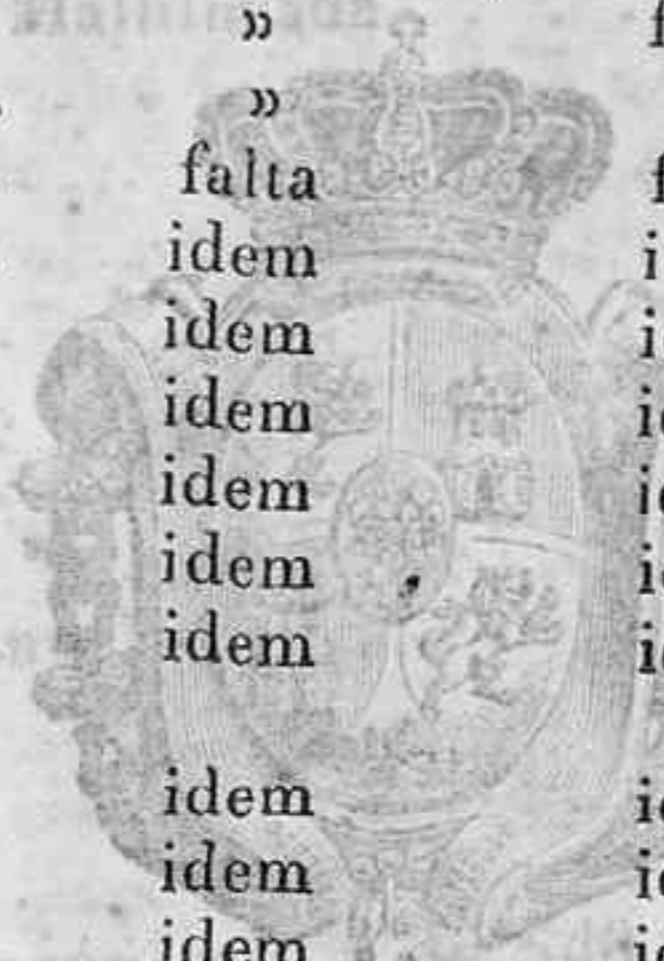 »
»
falta
idem
idem
idem
idem
idem
idem
idem
idem
idem